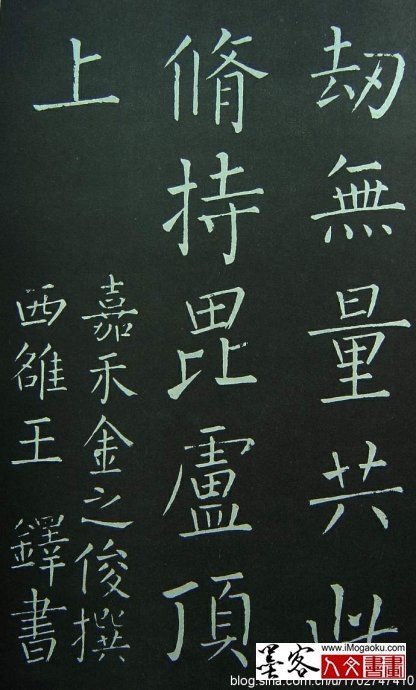 刼無量共此
脩持毘盧頂
上
嘉禾金之俊撰
西雒王 鐸書
墨客
www.iMogaoku.com
人文書畫
blog.sina.com.cn/u/1702747410